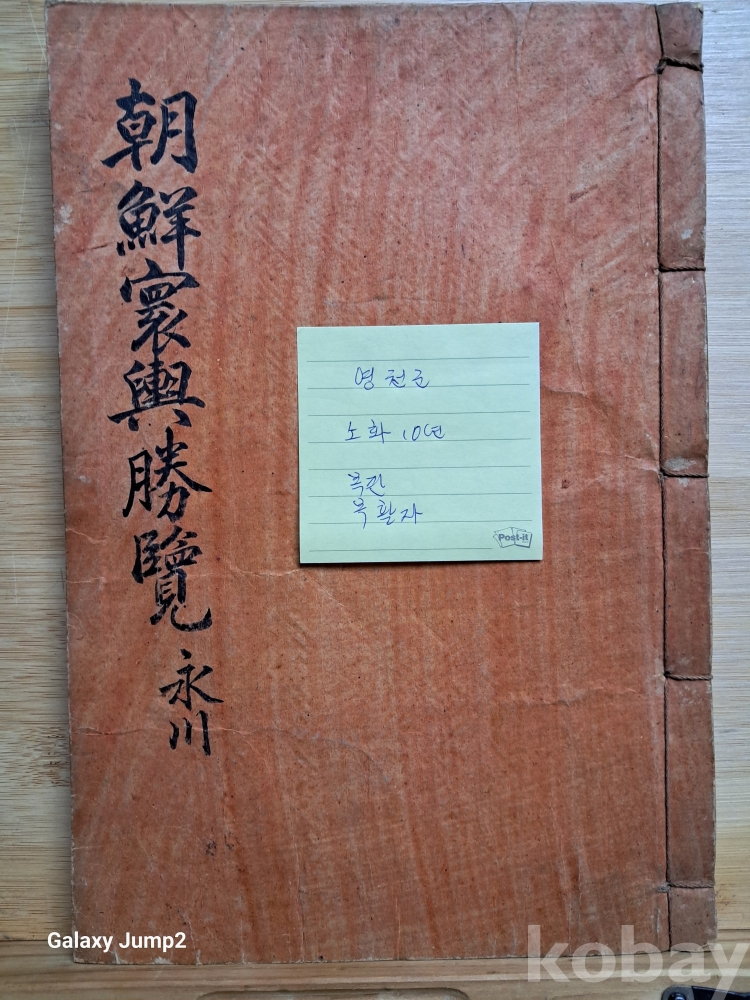 朝鮮寰輿勝覽 永川
영천군
소화 10년
목판
목활자
Post-it
Galaxy Jump2
kobay